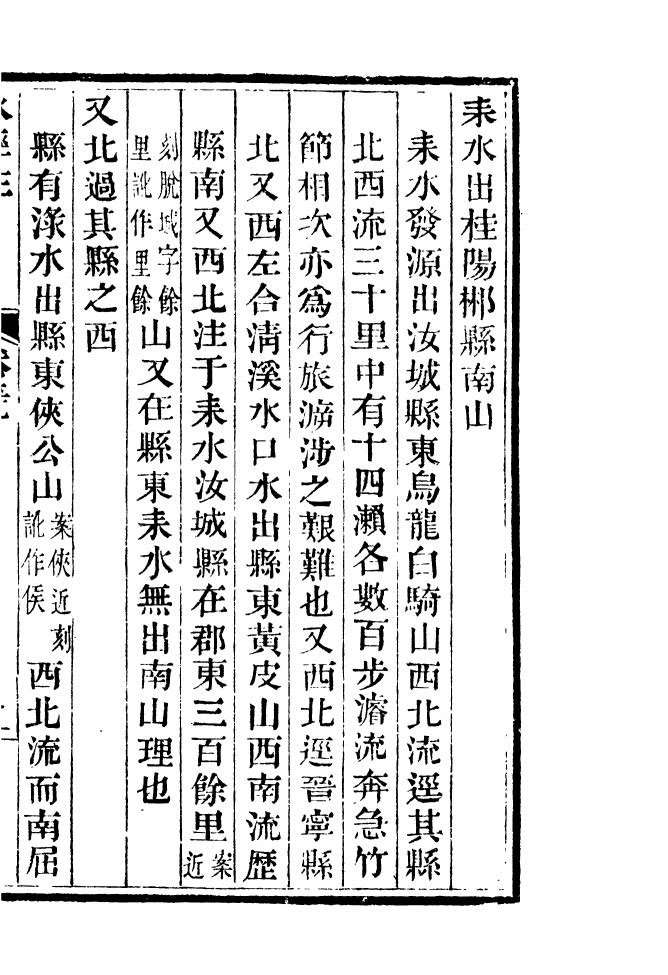 耒水出桂陽郴縣南山
耒水發源出汝城縣東烏龍白騎山西北流逕其縣
北西流三十里中有十四瀨各數百步濬流奔急竹
節相次亦為行旅泝涉之艱難也又西北逕晉寧縣
北又西左合清溪水口水出縣東黃皮山西南流歷
縣南又西北注于耒水汝城縣在郡東三百餘里案近
刻脫城字餘里訛作里餘山又在縣東耒水無出南山理也
又北過其縣之西
縣有淥水出縣東俠公山案俠近刻訛作侯西北流而南屈
水經注